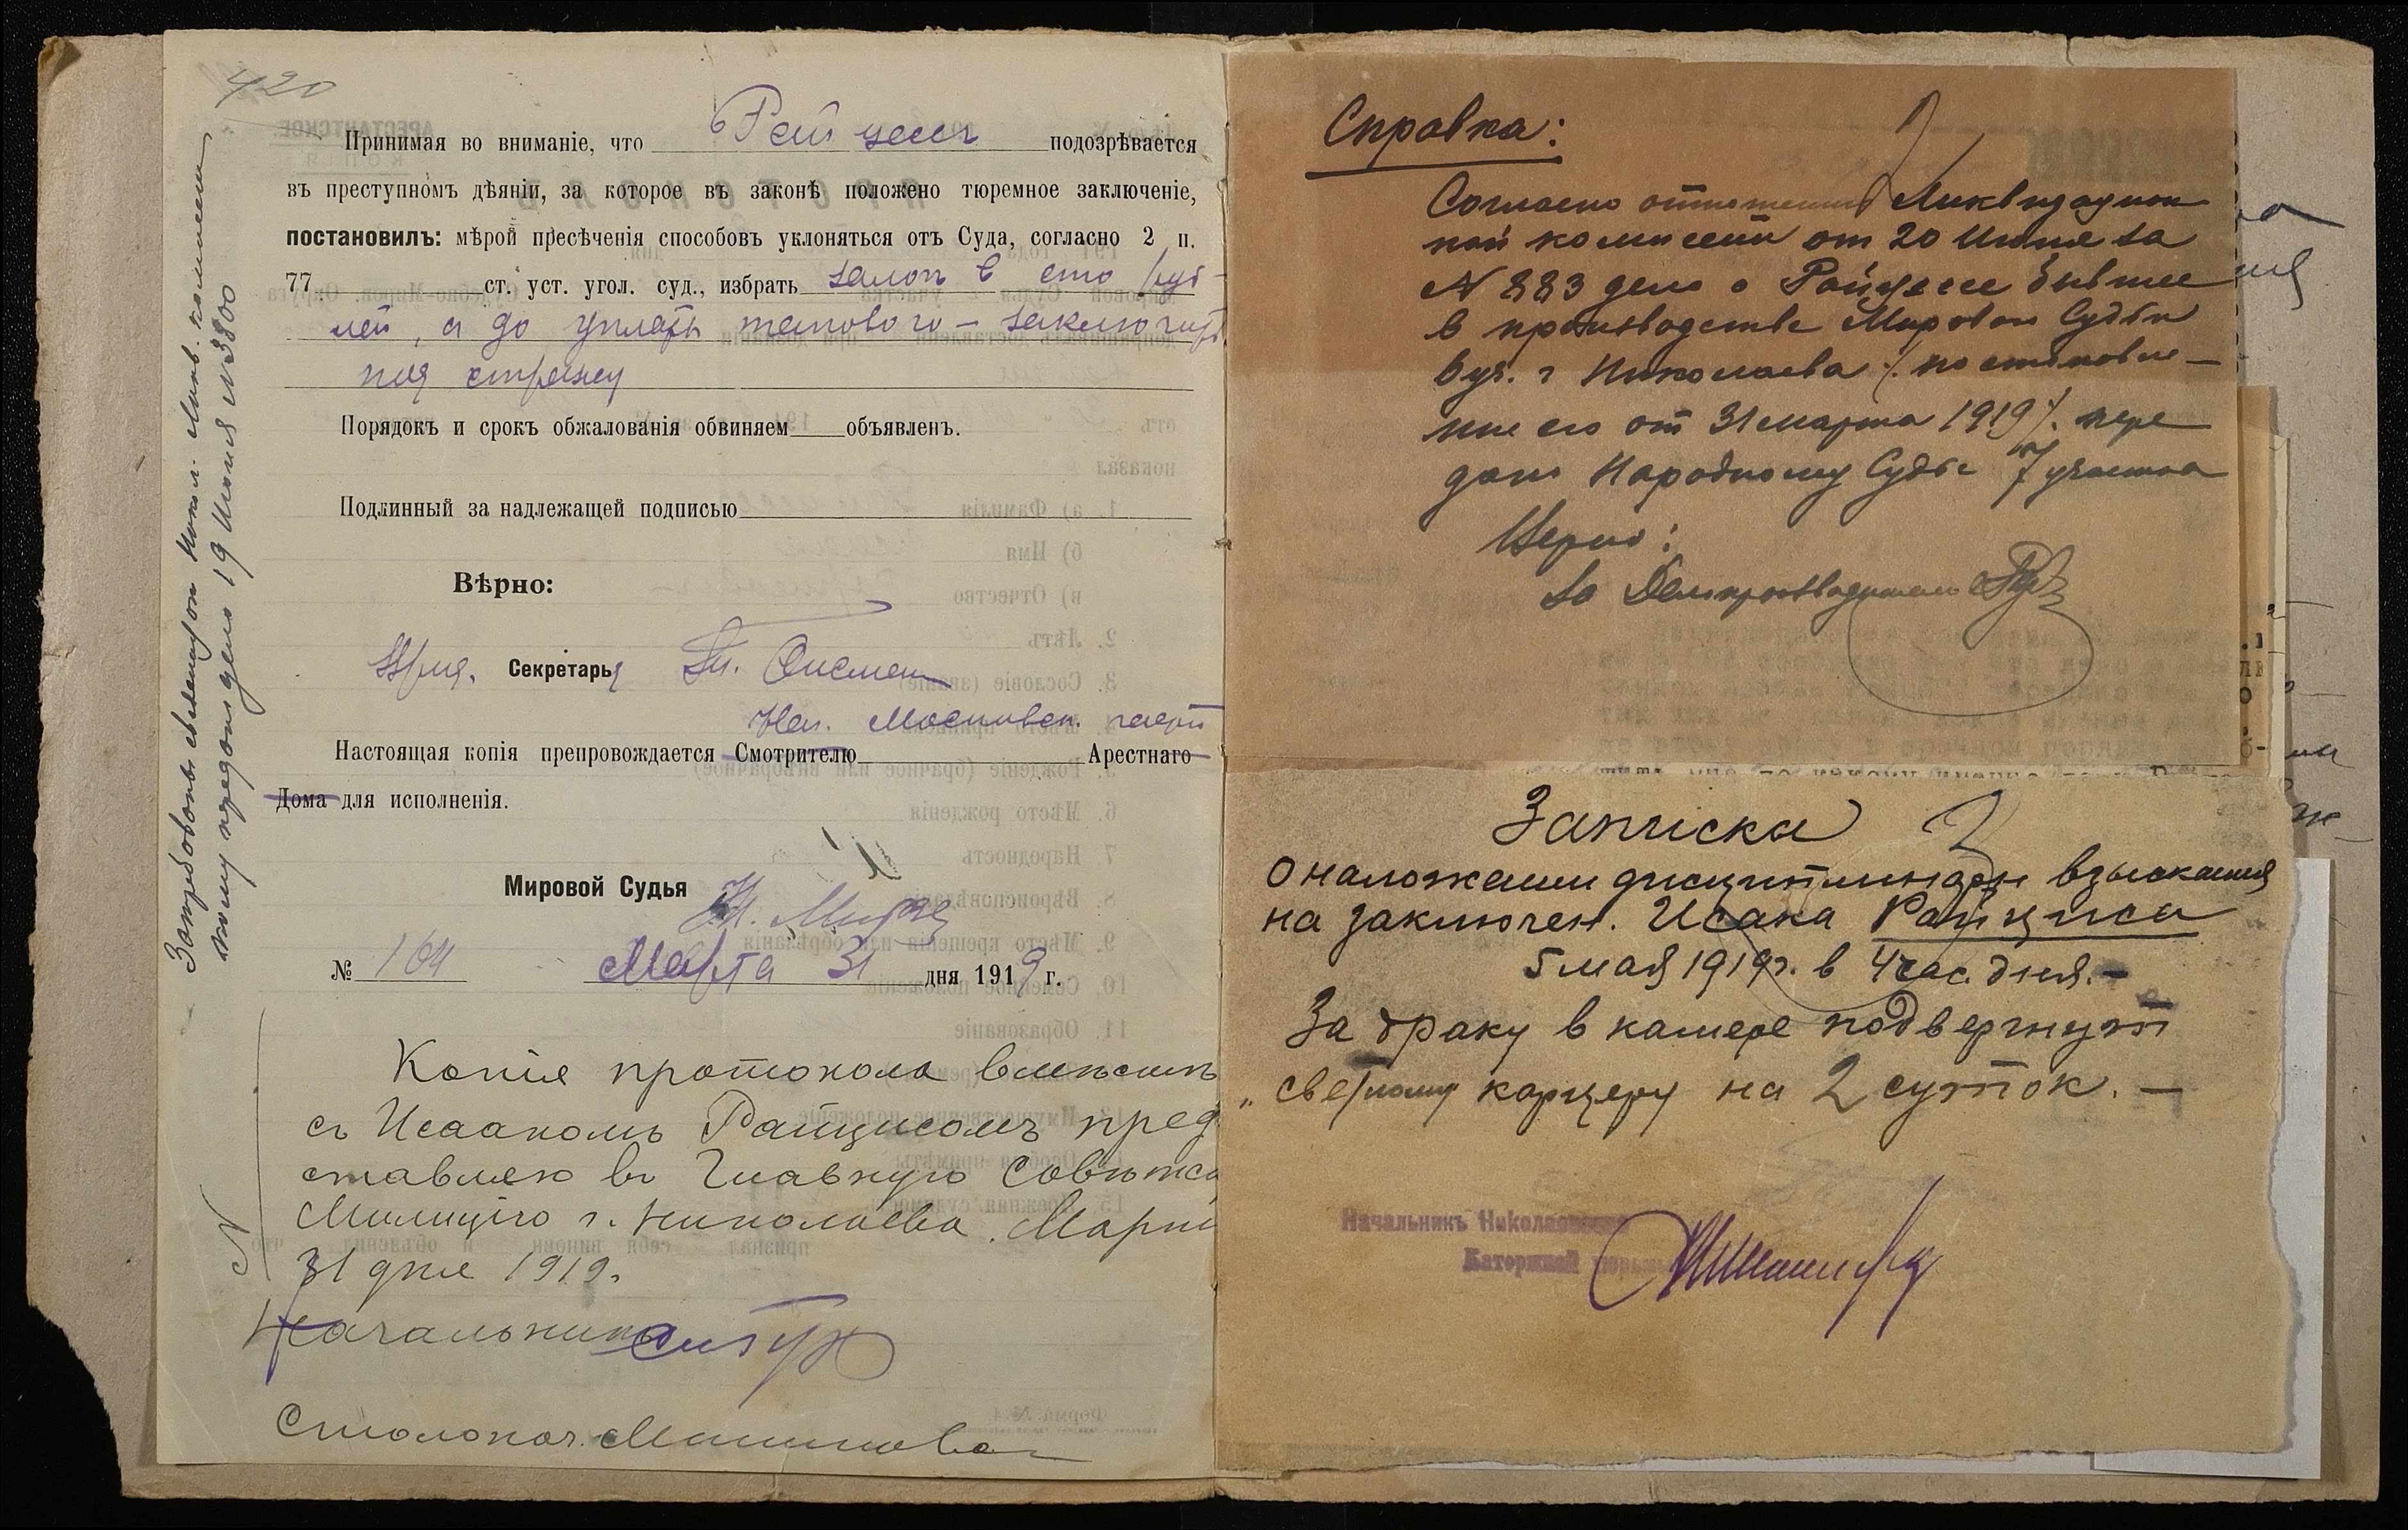 420
Принимая во вниманіе, что Рейцесъ подозрѣвается
въ преступномъ дѣяніи, за которое въ законѣ положено тюремное заключеніе,
постановилъ: мѣрой пресѣченія способовъ уклоняться отъ Суда, согласно 2 п.
77 ст. уст. угол. суд., избрать залогъ в сто руб-
лей, а до уплаты такового – заключить
под стражу
Порядокъ и срокъ обжалованія обвиняем объявленъ.
Подлинный за надлежащей подписью
Вѣрно:
Секретарь
Нач. Московск. части
Настоящая копія препровождается Смотрителю Арестнаго
Дома для исполненія.
Мировой Судья
№ 104 Марта 31 дня 1919 г.
Копія протокола вмѣстѣ
съ Исаакомъ Райцисомъ пред
ставляю въ Главную Совѣтск
Милицію г. Николаева. Марта
31 дня 1919 г.
Начальникъ
Столонач.
№
Затребовано Никол. Ликв. комиссии
дело 19 Июня № 3800
Справка:
Согласно отношения Ликвидацион
ной комиссии от 20 Июня за
N 883 дело о Райцесе бывшее
в производстве Мирового Судьи
6 уч. г Николаева /. постановле-
ние его от 31 марта 1919 /. пере
дано Народному Судье 7 участка
Верно:
За Делопроизводителя
Записка
о наложении дисциплинарн взыскания
на заключен. Исака Райциса
5 мая 1919 г. в 4 час. дня. –
За драку в камере подвергнут
светлому карцеру на 2 суток. –
Начальникъ Николаевской
Каторжной тюрьмы